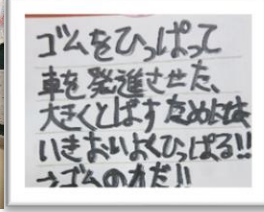 ゴムをひっぱって
車を発進させた、
大きくとばすためには、
いきおいよくひっぱる!!
→ゴムの力だ!!